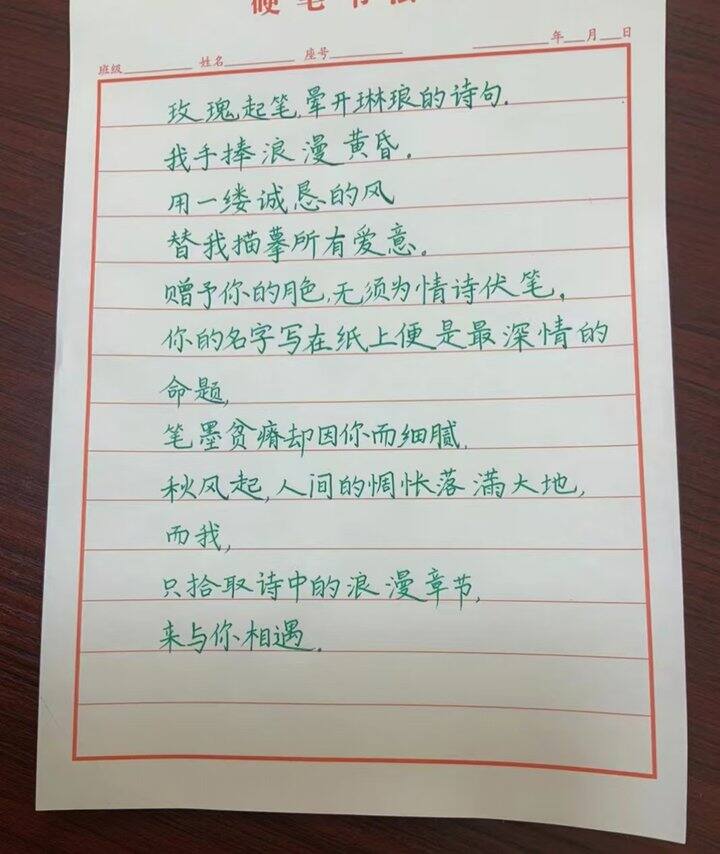 硬笔书法
班级 姓名 座号 年 月 日
玫瑰起笔,晕开琳琅的诗句.
我手捧浪漫黄昏.
用一缕诚恳的风
替我描摹所有爱意。
赠予你的月色,无须为情诗伏笔,
你的名字写在纸上便是最深情的
命题,
笔墨贫瘠却因你而细腻.
秋风起,人间的惆怅落满大地,
而我,
只拾取诗中的浪漫章节,
来与你相遇.